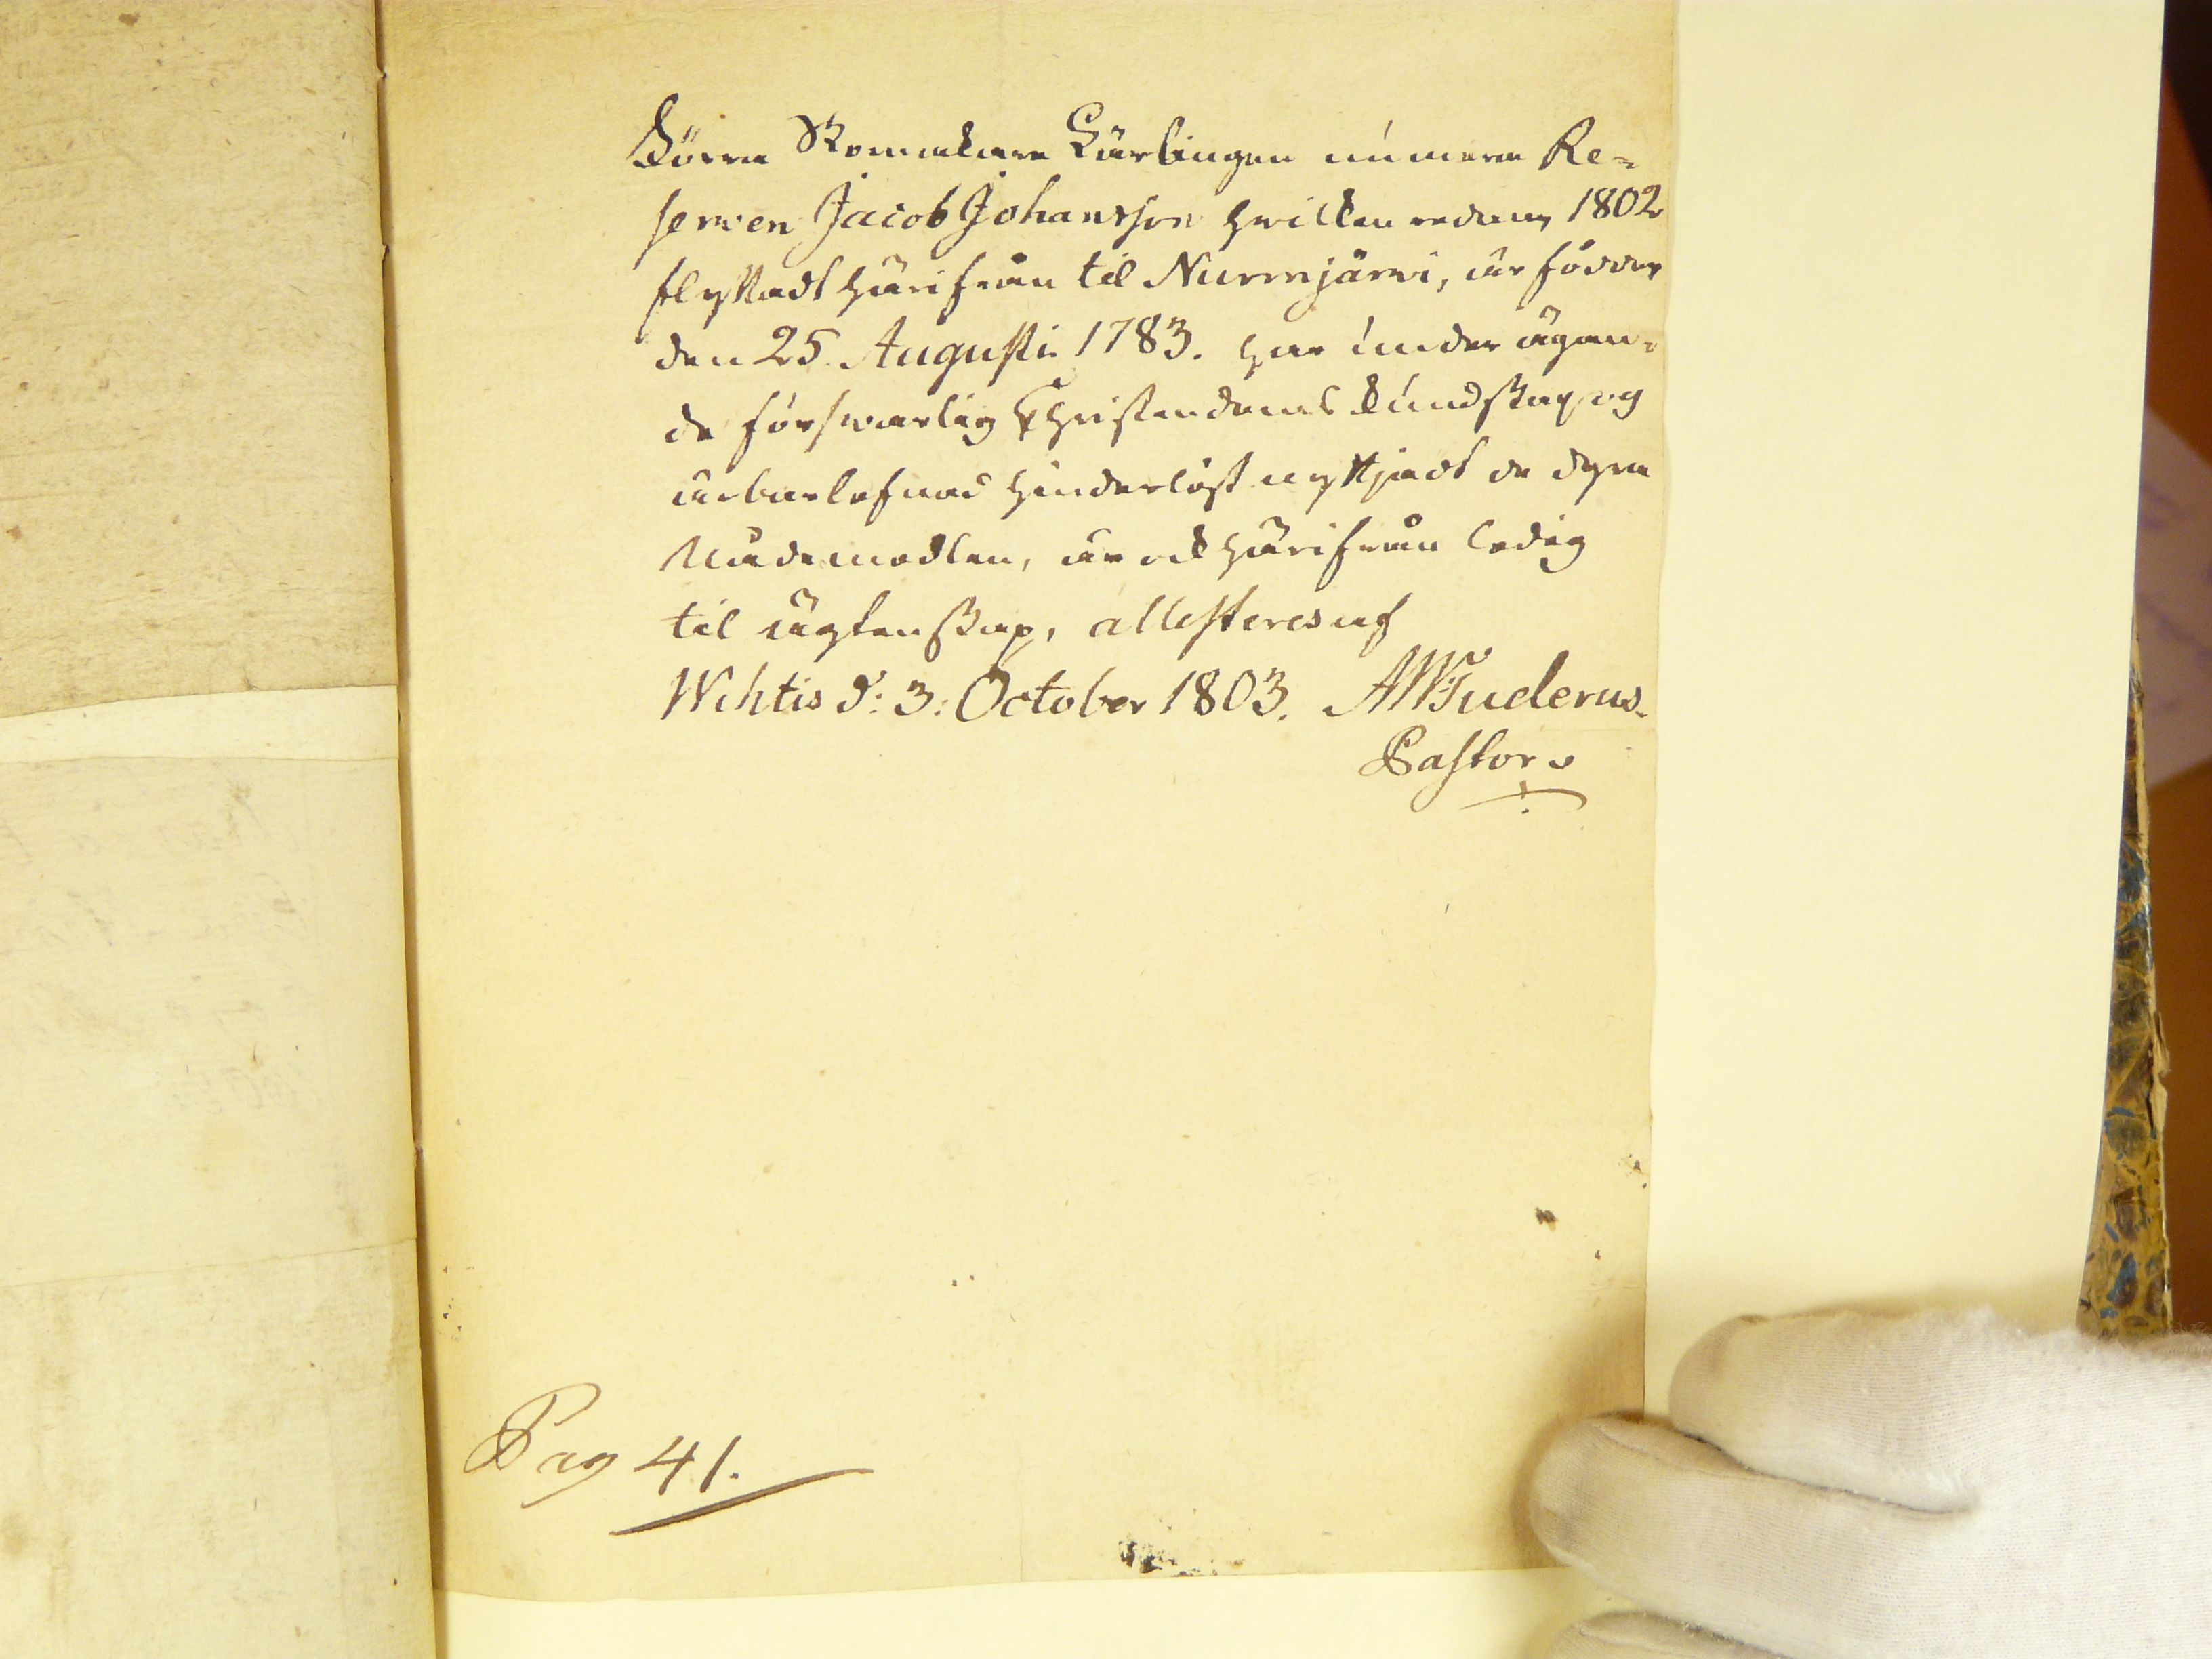 Förra Skomakare Lärlingen numera Re=
serven Jacob Johansson hvilken redan 1802
flyttadt härifrån til Nurmjärvi, är född
den 25. Augusti 1783. har under ägan=
de förswarlig Christendoms kundskap og
ärbar lefnad hinderlöst nyttjadt de dyra
Nådemedlen, är ock härifrån ledig
til ägtenskap, attesteres af
Wihtis d: 3: October 1803. AWTuderus.
Pastor
Pag 41.